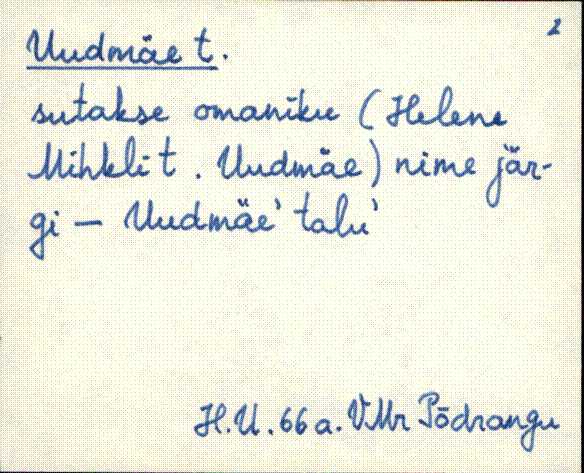 2
Uudmäe t.
sutakse omaniku (Helene
Mihkli t. Uudmäe) nime jär-
gi — Uudmäe' talu'
H.U. 66 a. VMr Põdrangu